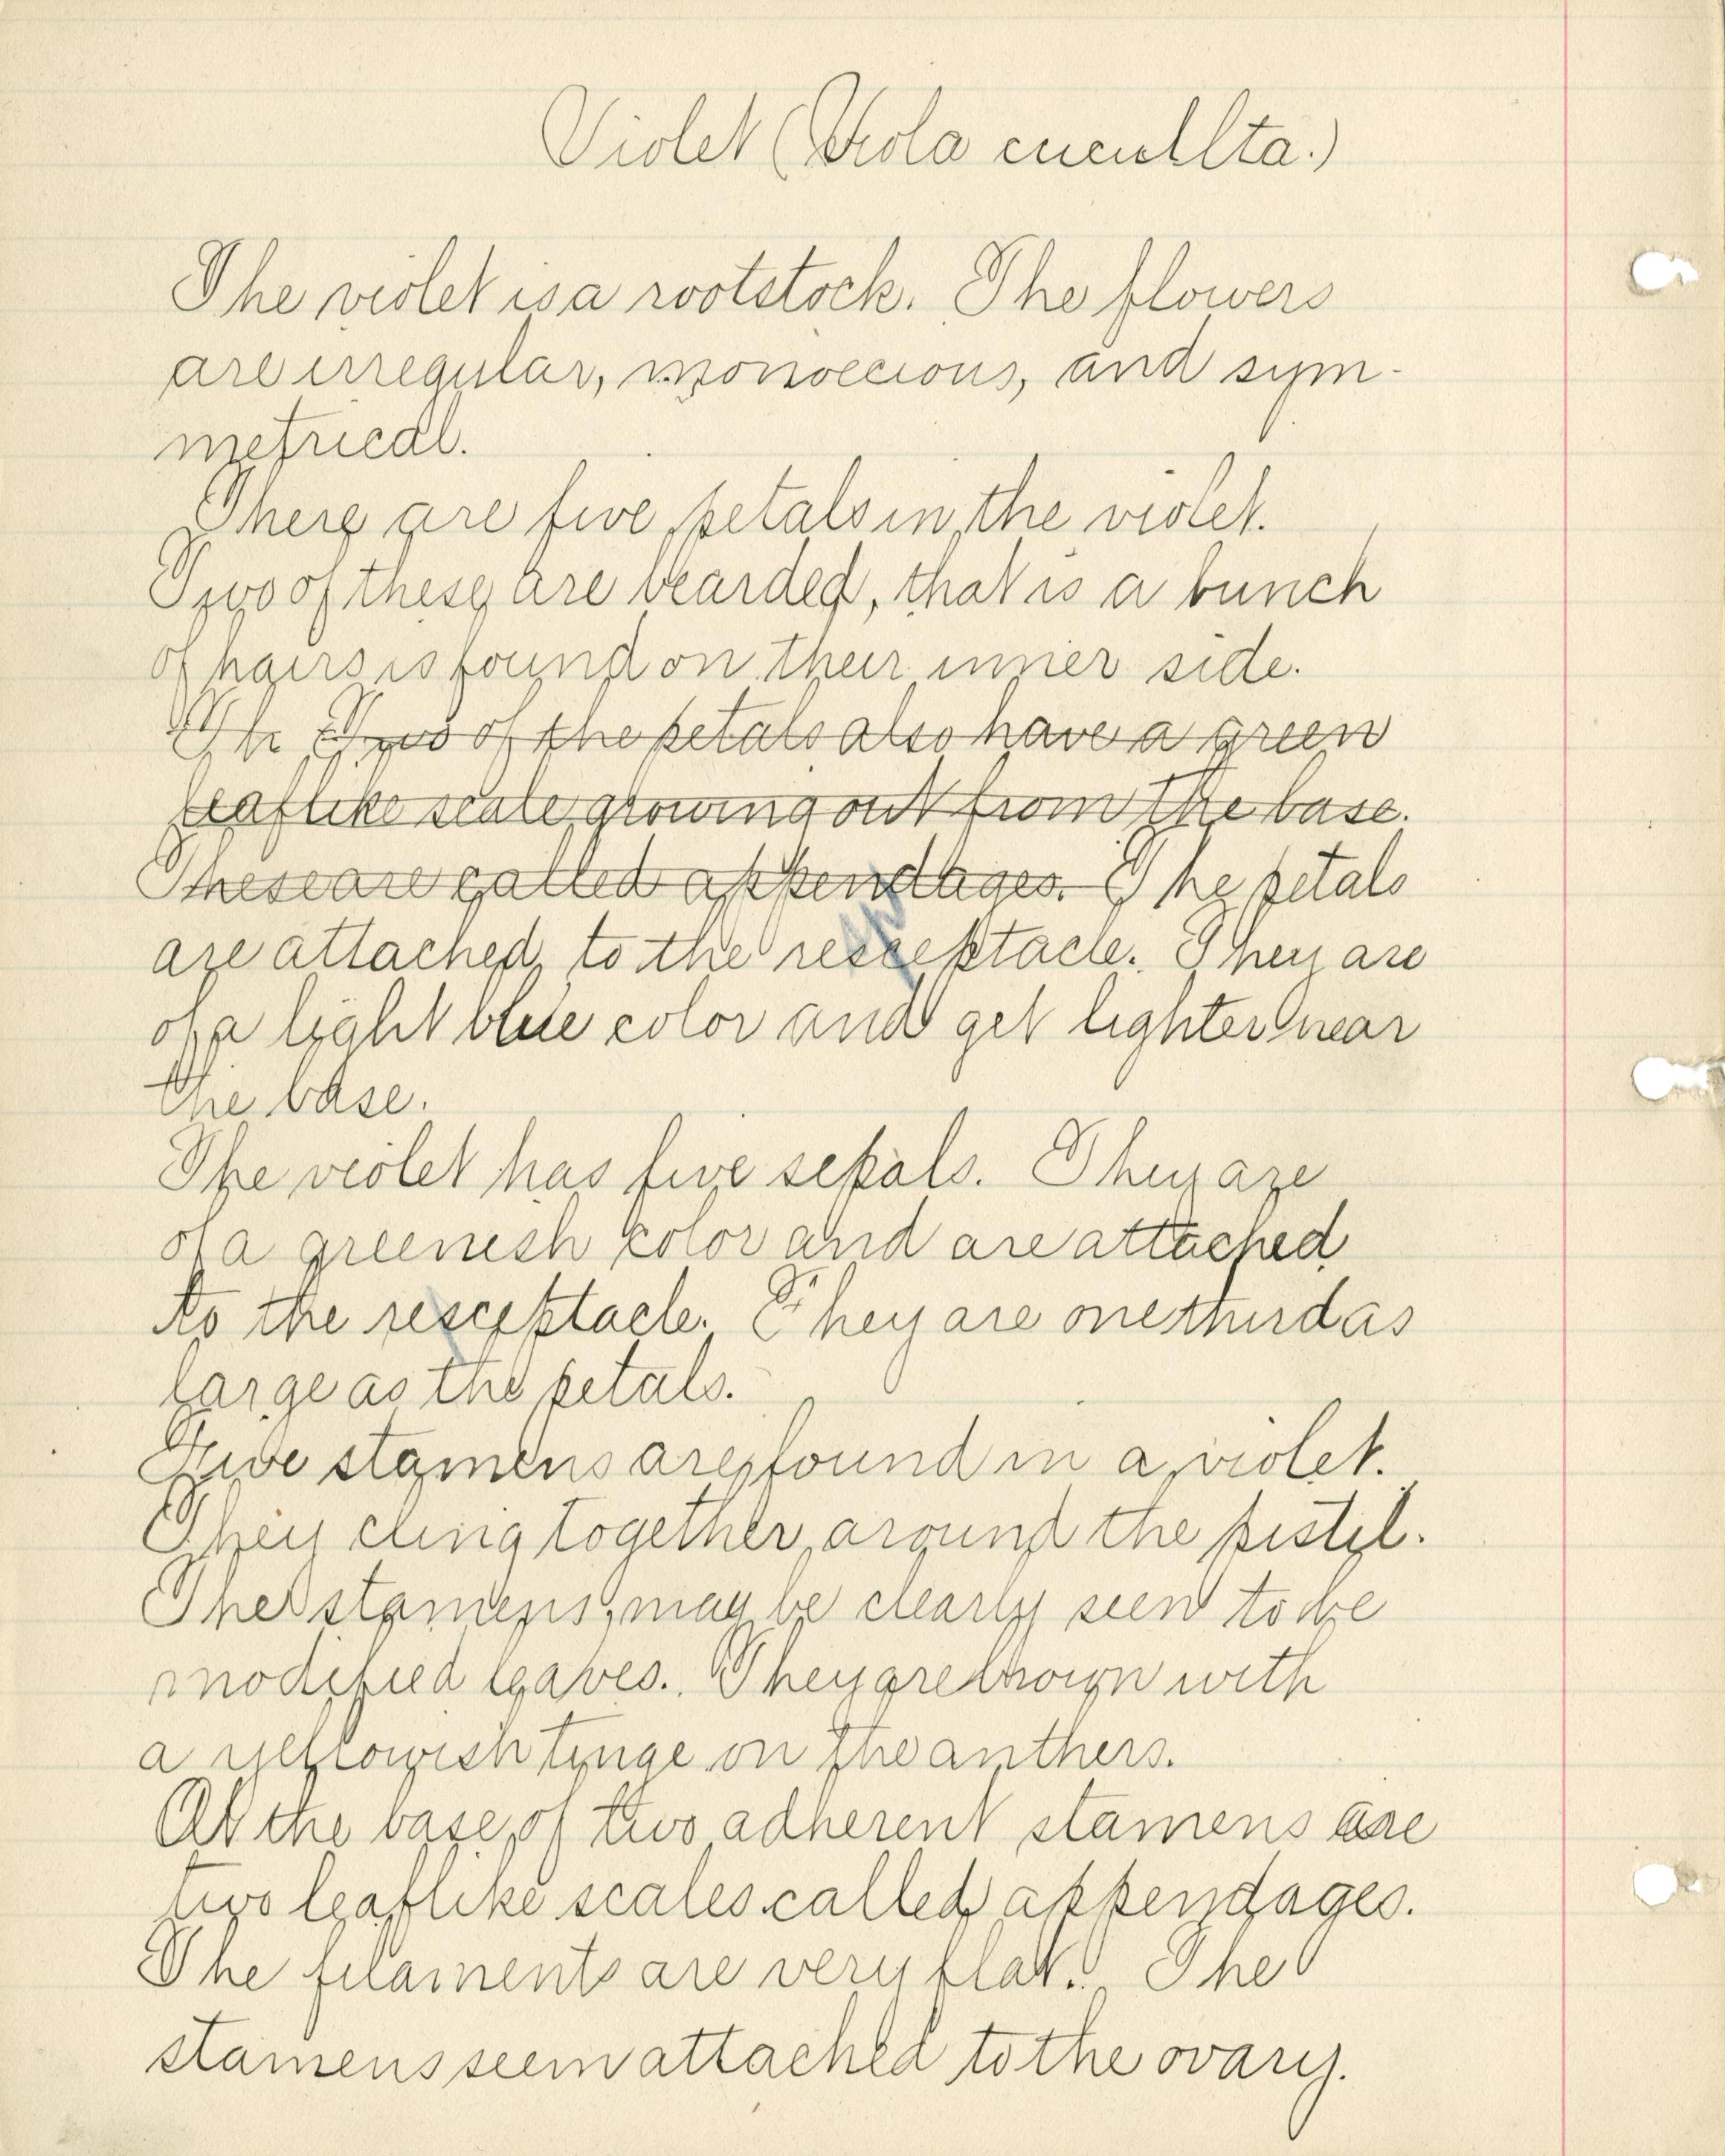 Violet (Viola cucullta.)
The violet is a rootstock. The flowers
are irregular, monoecious, and sym-
metrical.
There are five petals in the violet.
Two of these are bearded, that is a bunch
of hairs is found on their inner side.
Th Two of the petals also have a green
leaflike scale growing out from the base.
These are called appendages. The petals
are attached to the resceptacle. They are
of a light blue color and get lighter near
the base.
The violet has five sepals. They are
of a greenish color and are attached
to the resceptacle. They are one third as
large as the petals.
Five stamens are found in a violet.
They cling together around the pistil.
The stamens may be clearly seen to be
modified leaves. They are brown with
a yellowish tinge on the anthers.
At the base of two adherent stamens are
two leaflike scales called appendages.
The filaments are very flat. The
stamens seem attached to the ovary.